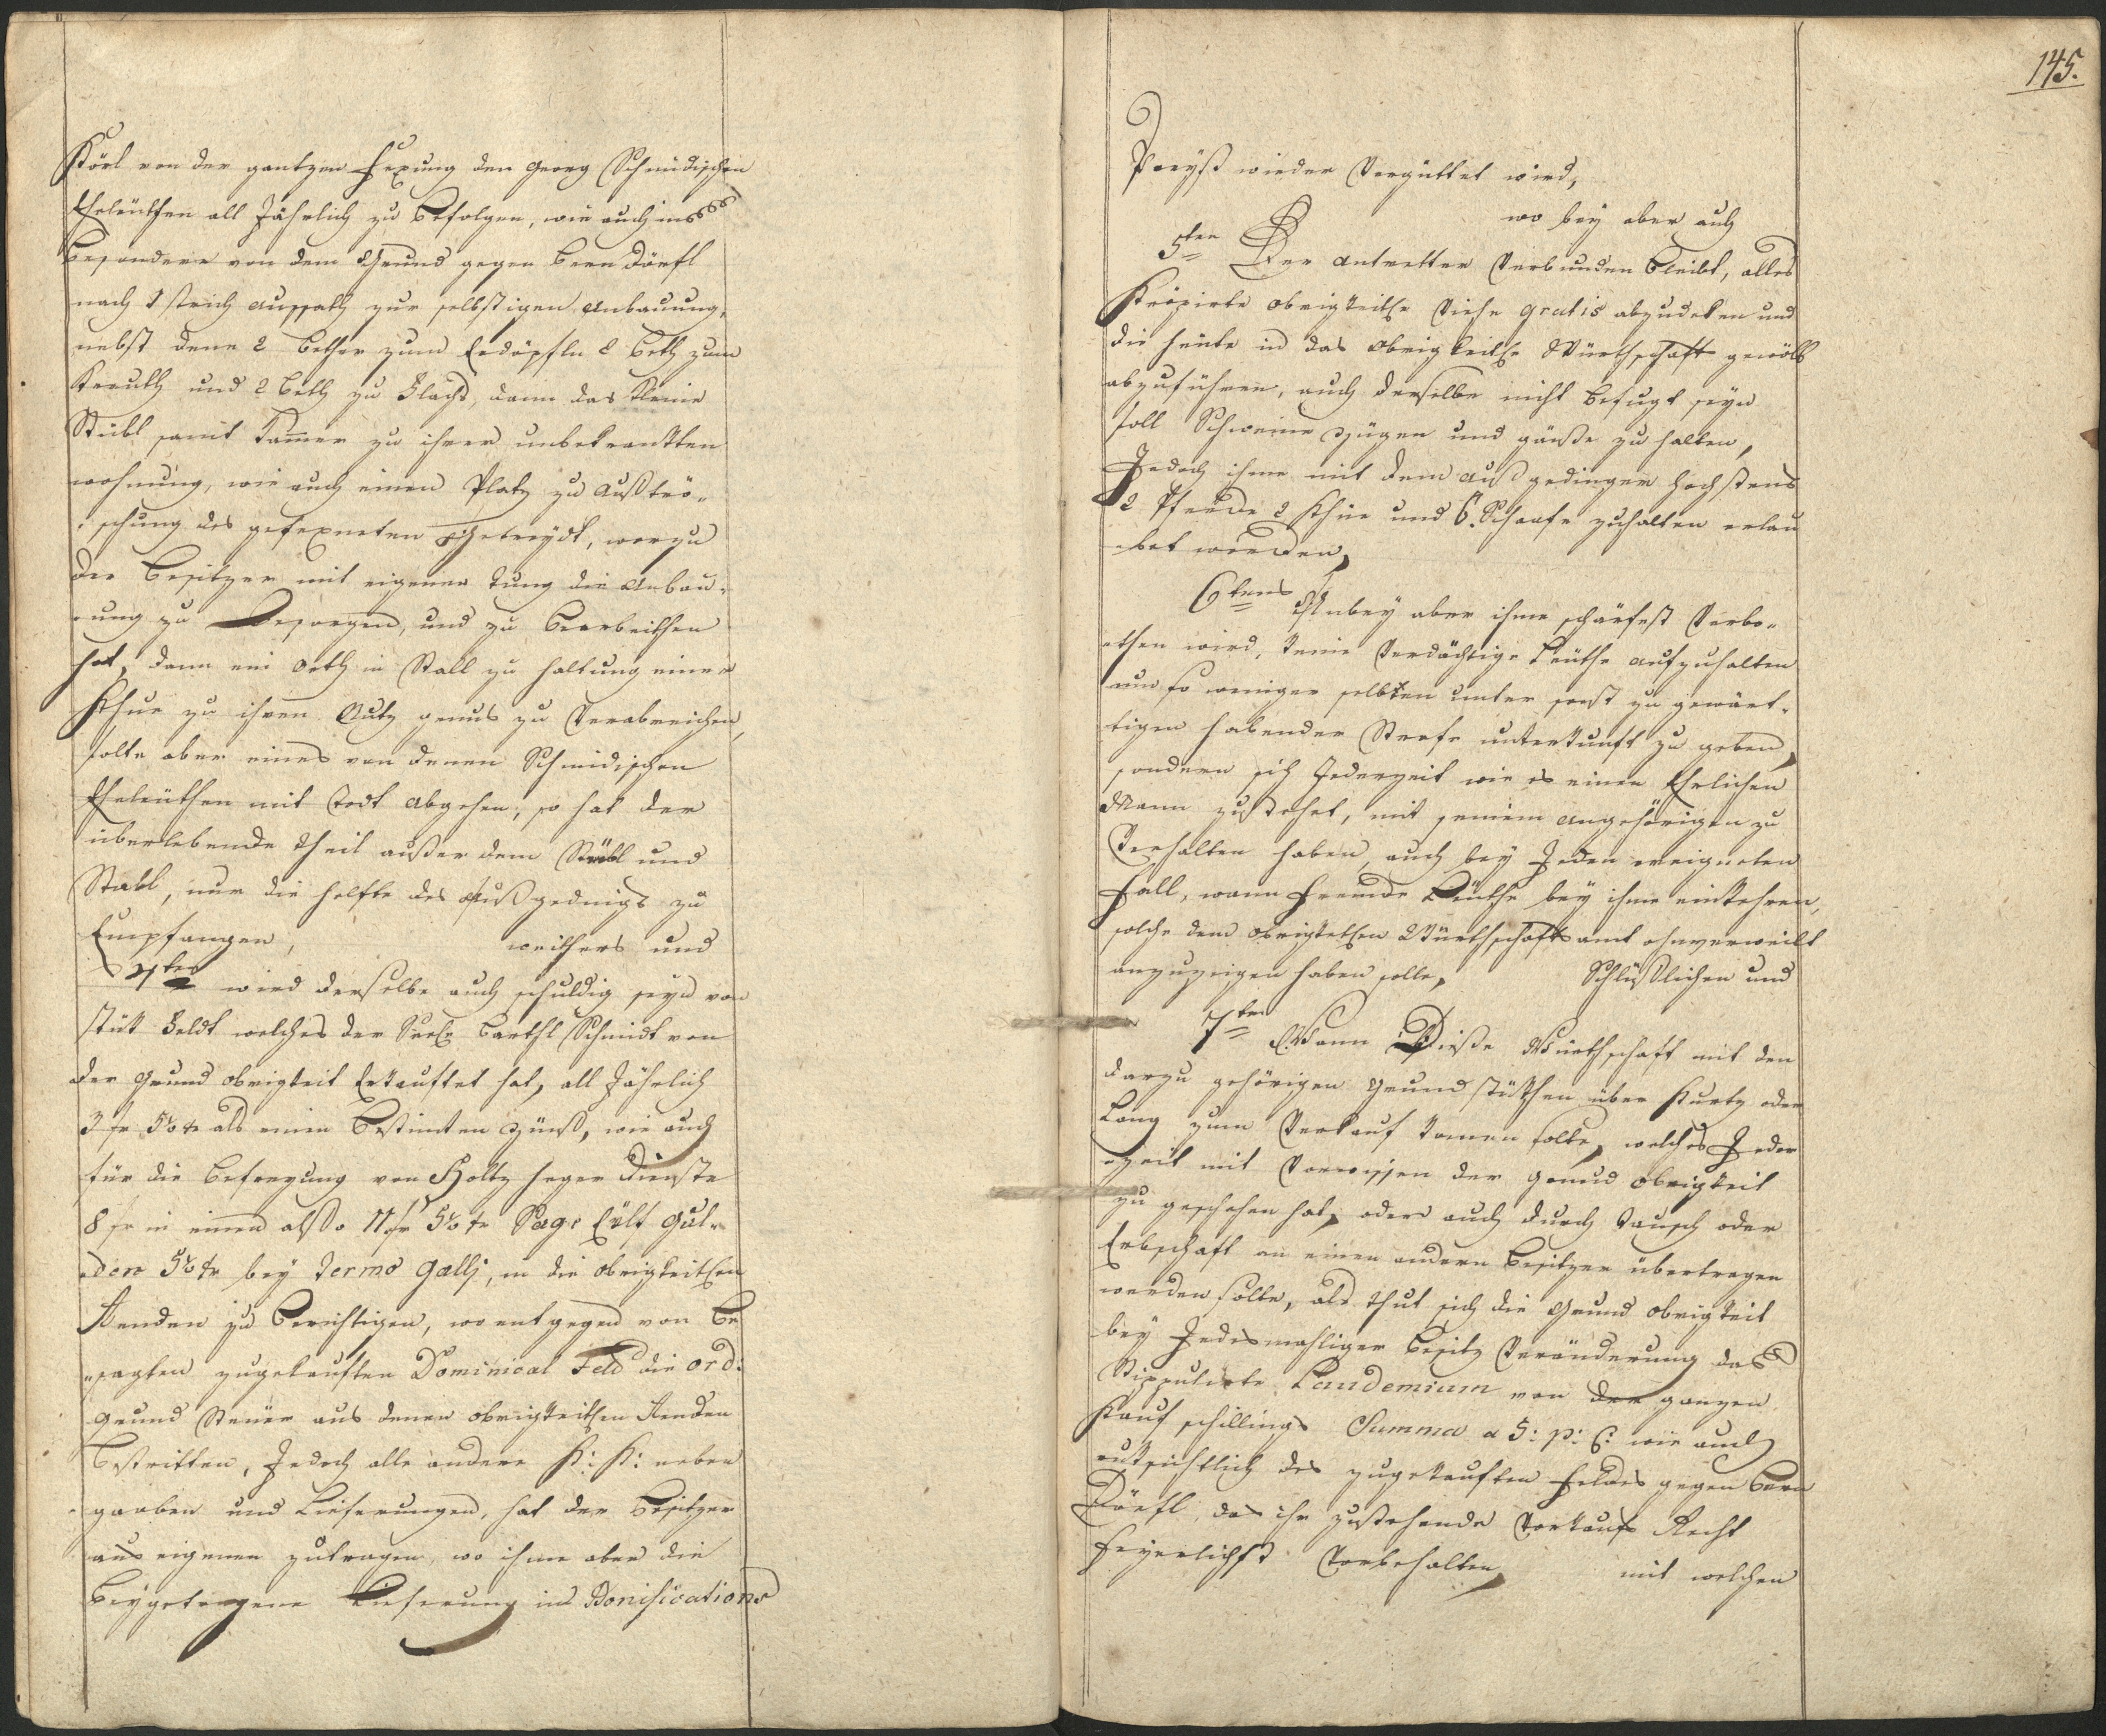 Körl von der gantzen Fexung den Georg Schmidischen
Eheleuthen all Jährlich zu befolgen, wie auch ins
besondere von dem Grund gegen Bern Dörfl
nach 1 strich aussath zur selbstigen Anbauung,
nebst denn 2 Bether zum Erdöpfln 2 beth zum
Krauth und 2 beth zu Flachs, dann das Kleine
Stübl samt Kammer zu ihrer unbekrankten
wohnung, wie auch einen Platz zu Außtrö-
schung des gefexneten Getreydt, worzu
der Besitzer mit eigener tung die Anbau-
ung zu Besorgen, und zu Bearbeithen
hat, dann ein orth in Stall zu haltung einer
Khue zu ihren Nutz genus zu Verabreichen,
solte aber eines von denen Schmidischen
Eheleuthen mit Todt abgehen, so hat der
überlebende theil außer dem Stübl und
Stahl, nur die helfte des Außgedings zu
Empfangen, weithers und
4ten wird derselbe auch schuldig seyn von
stük Feldt welches der Barthl Schmidt von
der Grund obrigkeit Erkauftet hat, all Jährlich
3 fr 5 als einen Bestimten Zünß, wie auch
für die Befreyung von Holtz heger Dienste
8 fr in einem alßo 11 fr 5 Sage Eilf Gul-
den 5 bey Termo Gallj, in die obrigkeitlen
Renden zu Berichtigen, wo entgegen von Be
sagten zugekauften Dominical Feld die ord:
Grund Steuer aus denen obrigkeitlen Renden
Bestritten, Jedoch alle andere K: K: neben
gaaben und Lieferungen, hat der Besitzer
aus eigenen zutragen, wo ihme aber die
Beygetragene Lieferung ins Bonifications
145.
Preyß wieder Vergüttet wird,
wo bey aber auch
5ten Der antretter Verbunden Bleibt, alles
Krepirte obrigkeitle Viehe gratis abzudeken und
die häute in das obrigkeitle Würthschafts gewölb
abzuführen, auch derselbe nicht Befugt seyn
soll Schweine Zügen und gänße zu halten,
Jedoch ihme mit dem Außgedinger höchstens
2 Pferde 2 Khüe und 6. Schaafe zuhalten erlau
bet werden,
6tens Anbey aber ihme schärfest Verbo-
then wird, keine Verdächtige Leuthe aufzuhalten
um so weniger selbten unter sonst zu gewärt-
tigen habender Strafe unterkunft zu geben,
sondern sich Jederzeit wie es einen Ehrlichen
Mann zustehet, mit seinem angehörigen zu
Verhalten haben, auch bey Jeden ereigneten
Fall, wann Fremde Leuthe bey ihme einkehren,
solche dem obrigkeitlen Würthschafts amt ohnverweilt
anzuzeigen haben solle, Schlüßlichen und
7ten Wann Dieße Würthschaft mit den
darzu gehörigen Grundstükhen über Kurtz oder
Lang zum Verkauf komen solte, welches Jeder
zeit mit Vorwissen der Grund obrigkeit
zu geschehen hat, oder auch durch Tausch oder
Erbschaft an einen andern Besitzer übertragen
werden solte, als thut sich die Grund obrigkeit
bey Jedesmahliger Besitz Veränderung das
Stippulirte Laudemium von der ganzen
Kauf schillings Summa a 5: p: C: wie auch
rüksichtlich des zugekauften Feldes gegen Bern
Dörfl, das ihr zustehende Vorkaufs Recht
feyerlichst Vorbehalten, mit welchen